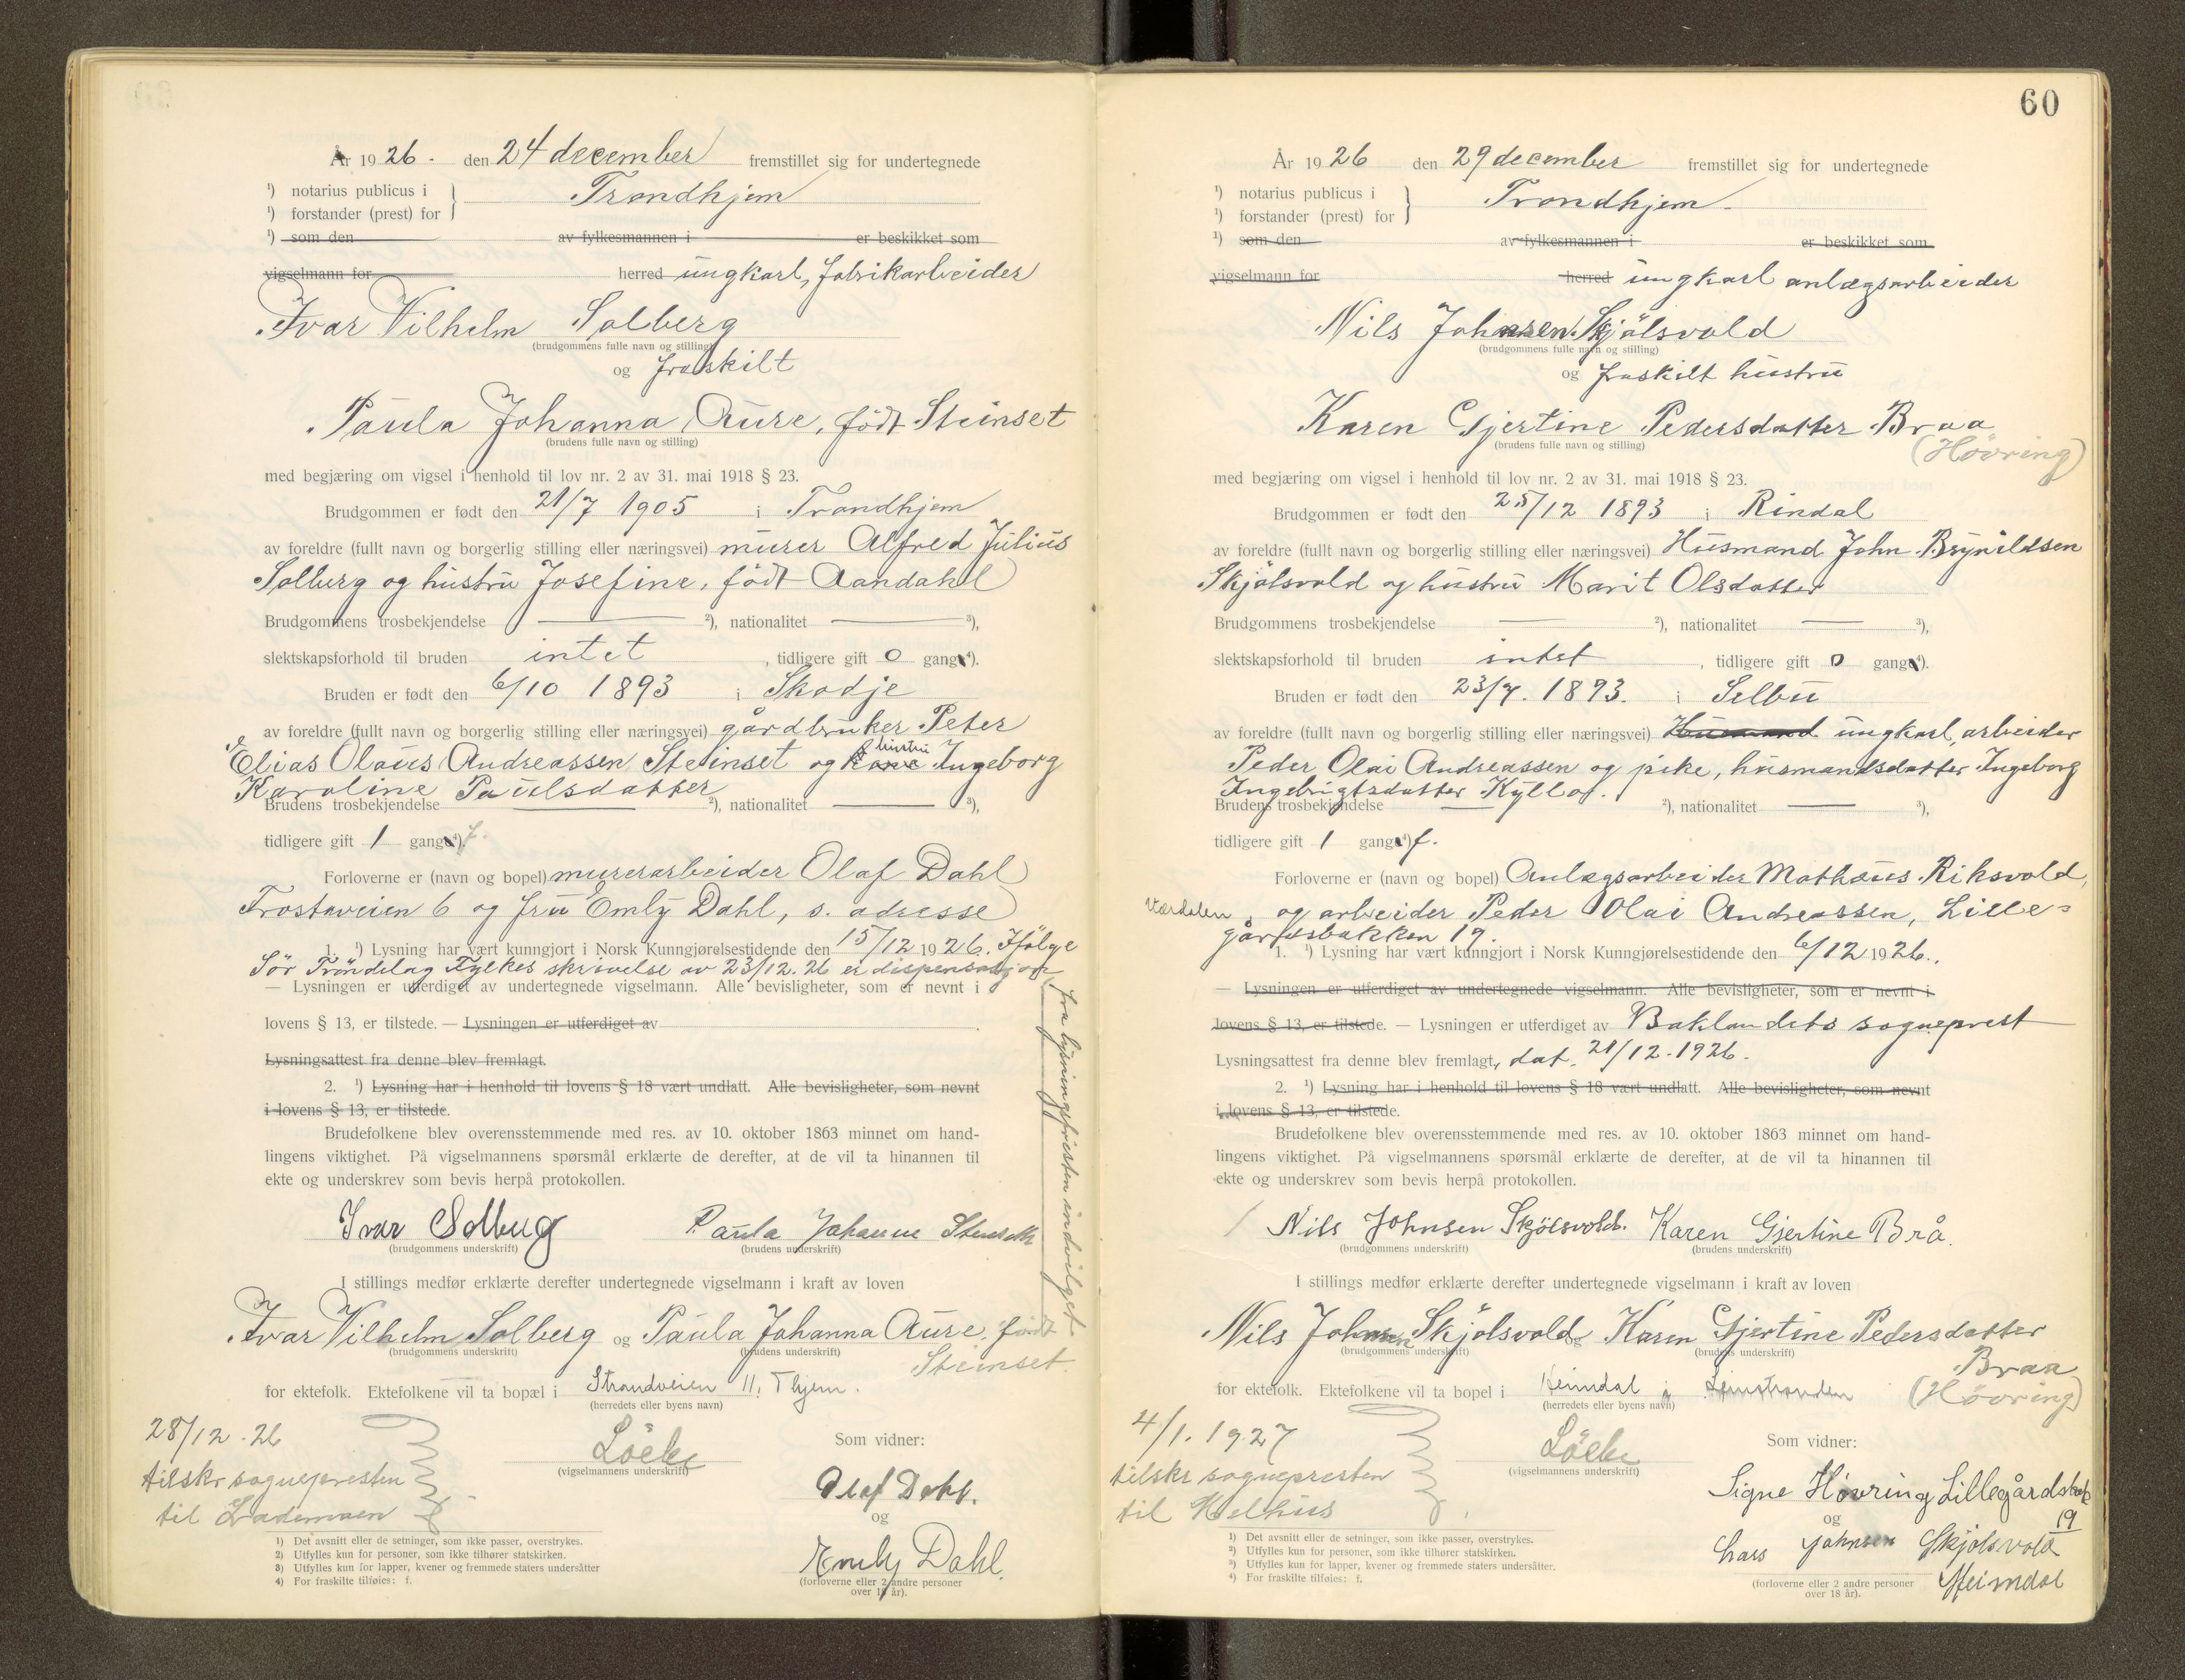 År 1926. den 24 december fremstillet sig for undertegnede
¹) notarius publicus i
¹) forstander (prest) for } Trondhjem
¹) som den av fylkesmannen i er beskikket som
vigselmann for herred ungkarl, fabrikarbeider
Ivar Vilhelm Solberg
(brudgommens fulle navn og stilling)
og fraskilt
Paula Johanna Aure, født Steinset
(brudens fulle navn og stilling)
med begjæring om vigsel i henhold til lov nr. 2 av 31. mai 1918 § 23.
Brudgommen er født den 21/7 1905 i Trondhjem
av foreldre (fullt navn og borgerlig stilling eller næringsvei) murer Alfred Julius
Solberg og hustru Josefine, født Aandahl
Brudgommens trosbekjendelse — ²), nationalitet — ³),
slektskapsforhold til bruden intet, tidligere gift 0 gang ⁴).
Bruden er født den 6/10 1893 i Skodje
av foreldre (fullt navn og borgerlig stilling eller næringsvei) gårdbruker Peter
Elias Olaus Andreassen Steinset og kone hustru Ingeborg
Karoline Paulsdatter
Brudens trosbekjendelse — ²), nationalitet — ³),
tidligere gift 1 gang ⁴) f.
Forloverne er (navn og bopel) murerarbeider Olaf Dahl
Frostaveien 6 og fru Emly Dahl, s. adresse
1. ¹) Lysning har vært kunngjort i Norsk Kunngjørelsestidende den 15/12 1926. Ifølge
Sör Tröndelag Fylkes skrivelse av 23/12.26 er dispensasjon
fra lysningsfristen indvilget
— Lysningen er utferdiget av undertegnede vigselmann. Alle bevisligheter, som er nevnt i
lovens § 13, er tilstede. — Lysningen er utferdiget av
Lysningsattest fra denne blev fremlagt.
2. ¹) Lysning har i henhold til lovens § 18 vært undlatt. Alle bevisligheter, som nevnt
i lovens § 13, er tilstede.
Brudefolkene blev overensstemmende med res. av 10. oktober 1863 minnet om hand-
lingens viktighet. På vigselmannens spørsmål erklærte de derefter, at de vil ta hinannen til
ekte og underskrev som bevis herpå protokollen.
Ivar Solberg Paula Johanne
(brudgommens underskrift) (brudens underskrift)
I stillings medfør erklærte derefter undertegnede vigselmann i kraft av loven
Ivar Vilhelm Solberg og Paula Johanna Aure, født
Steinset
(brudgommens underskrift) (brudens underskrift)
for ektefolk. Ektefolkene vil ta bopæl i Strandveien 11, Thjem.
(herredets eller byens navn)
28/12.26
tilskr sognepresten
til Lademoen
(vigselmannens underskrift)
Som vidner:
Olaf Dahl.
og
Emly Dahl.
(forloverne eller 2 andre personer
over 18 år).
1) Det avsnitt eller de setninger, som ikke passer, overstrykes.
2) Utfylles kun for personer, som ikke tilhører statskirken.
3) Utfylles kun for lapper, kvener og fremmede staters undersåtter
4) For fraskilte tilføies: f.
60
År 1926 den 29 december fremstillet sig for undertegnede
¹) notarius publicus i
¹) forstander (prest) for } Trondhjem
¹) som den av fylkesmannen i er beskikket som
vigselmann for herred ungkarl anlægsarbeider
Nils Johnsen Skjölsvold
(brudgommens fulle navn og stilling)
og fraskilt hustru
Karen Gjertine Pedersdatter Braa
(Hövring)
(brudens fulle navn og stilling)
med begjæring om vigsel i henhold til lov nr. 2 av 31. mai 1918 § 23.
Brudgommen er født den 25/12 1893 i Rindal
av foreldre (fullt navn og borgerlig stilling eller næringsvei) Husmand John Brynildsen
Skjölsvold og hustru Marit Olsdatter
Brudgommens trosbekjendelse — ²), nationalitet — ³),
slektskapsforhold til bruden intet, tidligere gift 0 gang ⁴).
Bruden er født den 23/7. 1893. i Selbu
av foreldre (fullt navn og borgerlig stilling eller næringsvei) Husmand ungkarl, arbeider
Peder Olai Andreassen og pike, husmandsdatter Ingeborg
Ingebrigtsdatter Kyllo.
Brudens trosbekjendelse — ²), nationalitet — ³),
tidligere gift 1 gang ⁴) f.
Forloverne er (navn og bopel) Anlægsarbeider Mathæus Riksvold,
Værdalen, og arbeider Peder Olai Andreassen, Lille-
gårdsbakken 19.
1. ¹) Lysning har vært kunngjort i Norsk Kunngjørelsestidende den 6/12 1926.
— Lysningen er utferdiget av undertegnede vigselmann. Alle bevisligheter, som er nevnt i
lovens § 13, er tilstede. — Lysningen er utferdiget av Baklandets sogneprest
Lysningsattest fra denne blev fremlagt, dat. 21/12.1926.
2. ¹) Lysning har i henhold til lovens § 18 vært undlatt. Alle bevisligheter, som nevnt
i lovens § 13, er tilstede.
Brudefolkene blev overensstemmende med res. av 10. oktober 1863 minnet om hand-
lingens viktighet. På vigselmannens spørsmål erklærte de derefter, at de vil ta hinannen til
ekte og underskrev som bevis herpå protokollen.
Nils Johnsen Skjölsvold. Karen Gjertine Brå.
(brudgommens underskrift) (brudens underskrift)
I stillings medfør erklærte derefter undertegnede vigselmann i kraft av loven
Nils Johnsen Skjölsvold og Karen Gjertine Pedersdatter
Braa
(Hövring)
(brudgommens underskrift) (brudens underskrift)
for ektefolk. Ektefolkene vil ta bopel i Heimdal i Leinstranden
(herredets eller byens navn)
4/1. 1927
tilskr sognepresten
til Melhus
(vigselmannens underskrift)
Som vidner:
Signe Hövring Lillegårdsbak
19
og
Lars Johnsen Skjölsvold
Heimdal
(forloverne eller 2 andre personer
over 18 år).
¹) Det avsnitt eller de setninger, som ikke passer, overstrykes.
²) Utfylles kun for personer, som ikke tilhører statskirken.
³) Utfylles kun for lapper, kvener og fremmede staters undersåtter.
⁴) For fraskilte tilføies: f.